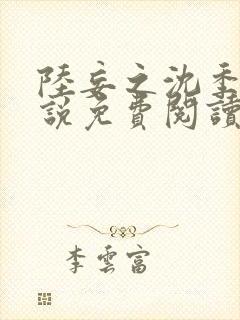 陸妄之沈季
說免費閱讀
李雲富